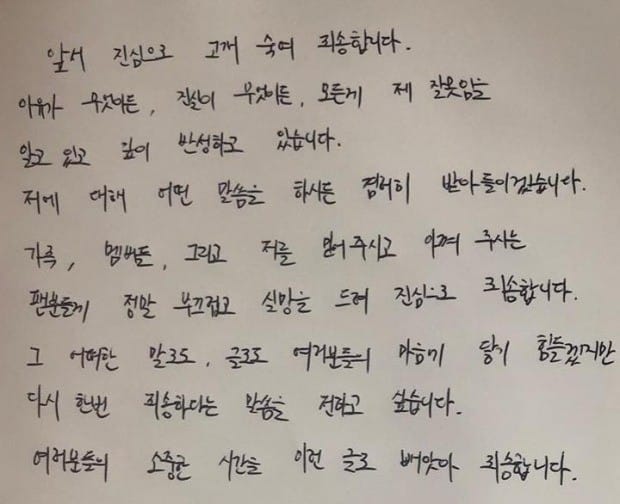 앞서 진심으로 고개 숙여 죄송합니다.
이유가 무엇이든, 진실이 무엇이든, 모든게 제 잘못임을
알고 있고 깊이 반성하고 있습니다.
저에 대해 어떤 말씀을 하시든 겸허히 받아들이겠습니다.
가족, 멤버들, 그리고 저를 믿어 주시고 아껴 주시는
팬분들께 정말 부끄럽고 실망을 드려 진심으로 죄송합니다.
그 어떠한 말로도, 글로도 여러분들의 마음에 닿기 힘들겠지만
다시 한번 죄송하다는 말씀을 전하고 싶습니다.
여러분들의 소중한 시간을 이런 글로 빼앗아 죄송합니다.